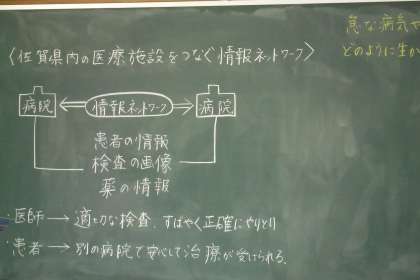 〈佐賀県内の医療施設をつなぐ情報ネットワーク〉
急な病気で
どのように生か
病院 ⇔ 情報ネットワーク ⇒ 病院
患者の情報
検査の画像
薬の情報
・医師 → 適切な検査、すばやく正確にやりとり
・患者 → 別の病院で安心して治療が受けられる。